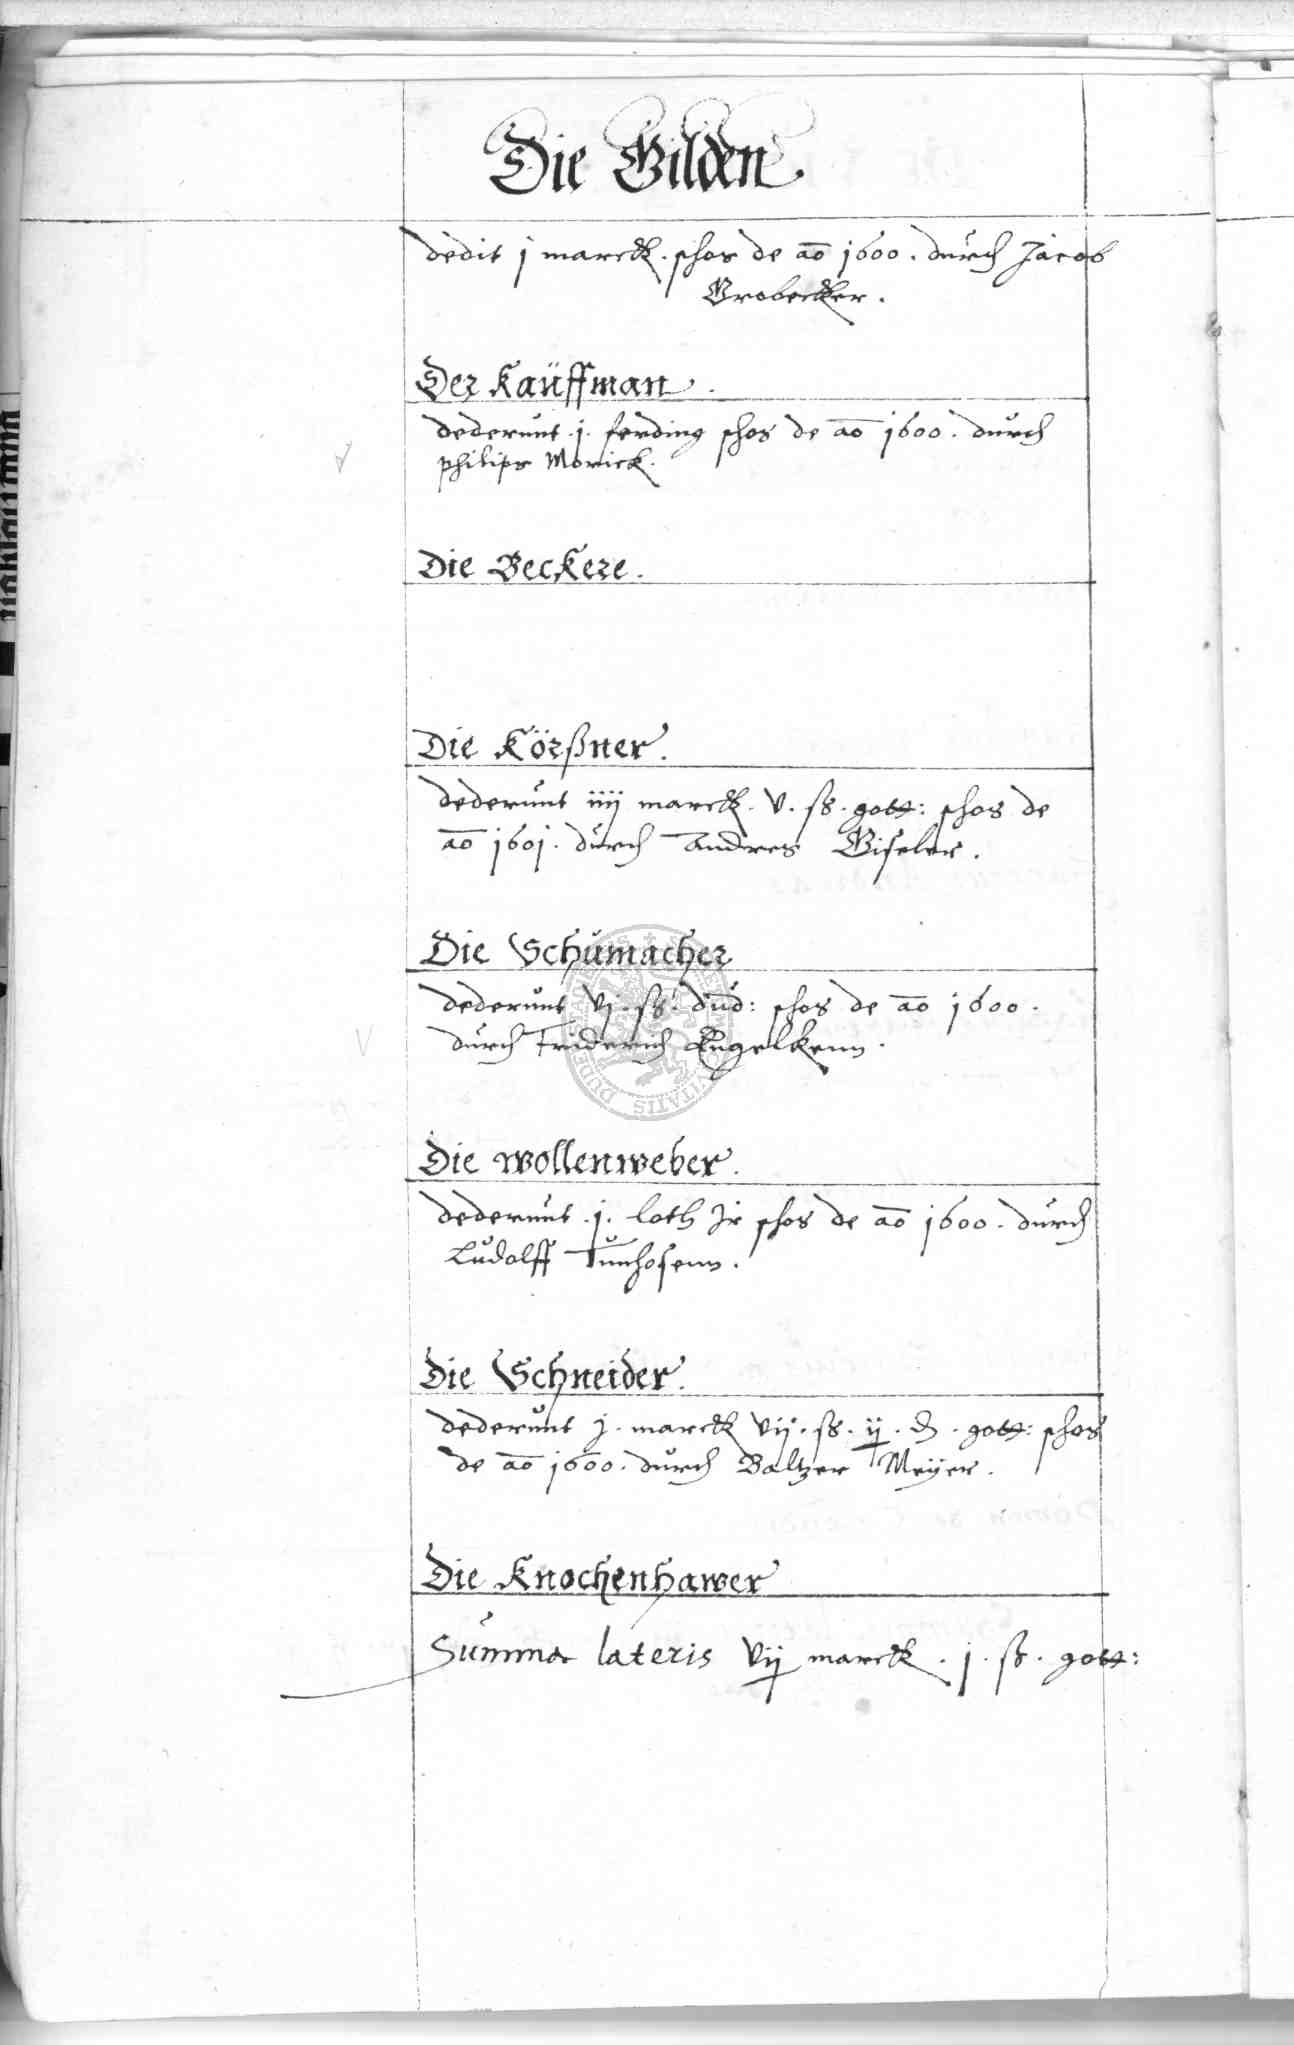 Die Gilden
dedit j marck. schos de ao 1600. durch Jacob
Grobecker.
Der Kauffman.
dederunt .j. ferding schos de ao 1600. durch
philips Morick.
Die Beckere.
Die Körßner.
dederunt iiij marck. v. ß. gott: schos de
ao 1601. durch Andres Giseler.
Die Schumacher
dederunt vj. ß. dud: schos de ao 1600.
durch Friderich Engelkenn.
Die wollenweber.
dederunt .j. loth schos de ao 1600. durch
Ludolff Tunhosenn.
Die Schneider.
dederunt j. marck vij. ß. ij. d. gott: schos
de ao 1600. durch Baltzer Meyer.
Die Knochenhawer
Summa lateris vij marck. j. ß. gott: